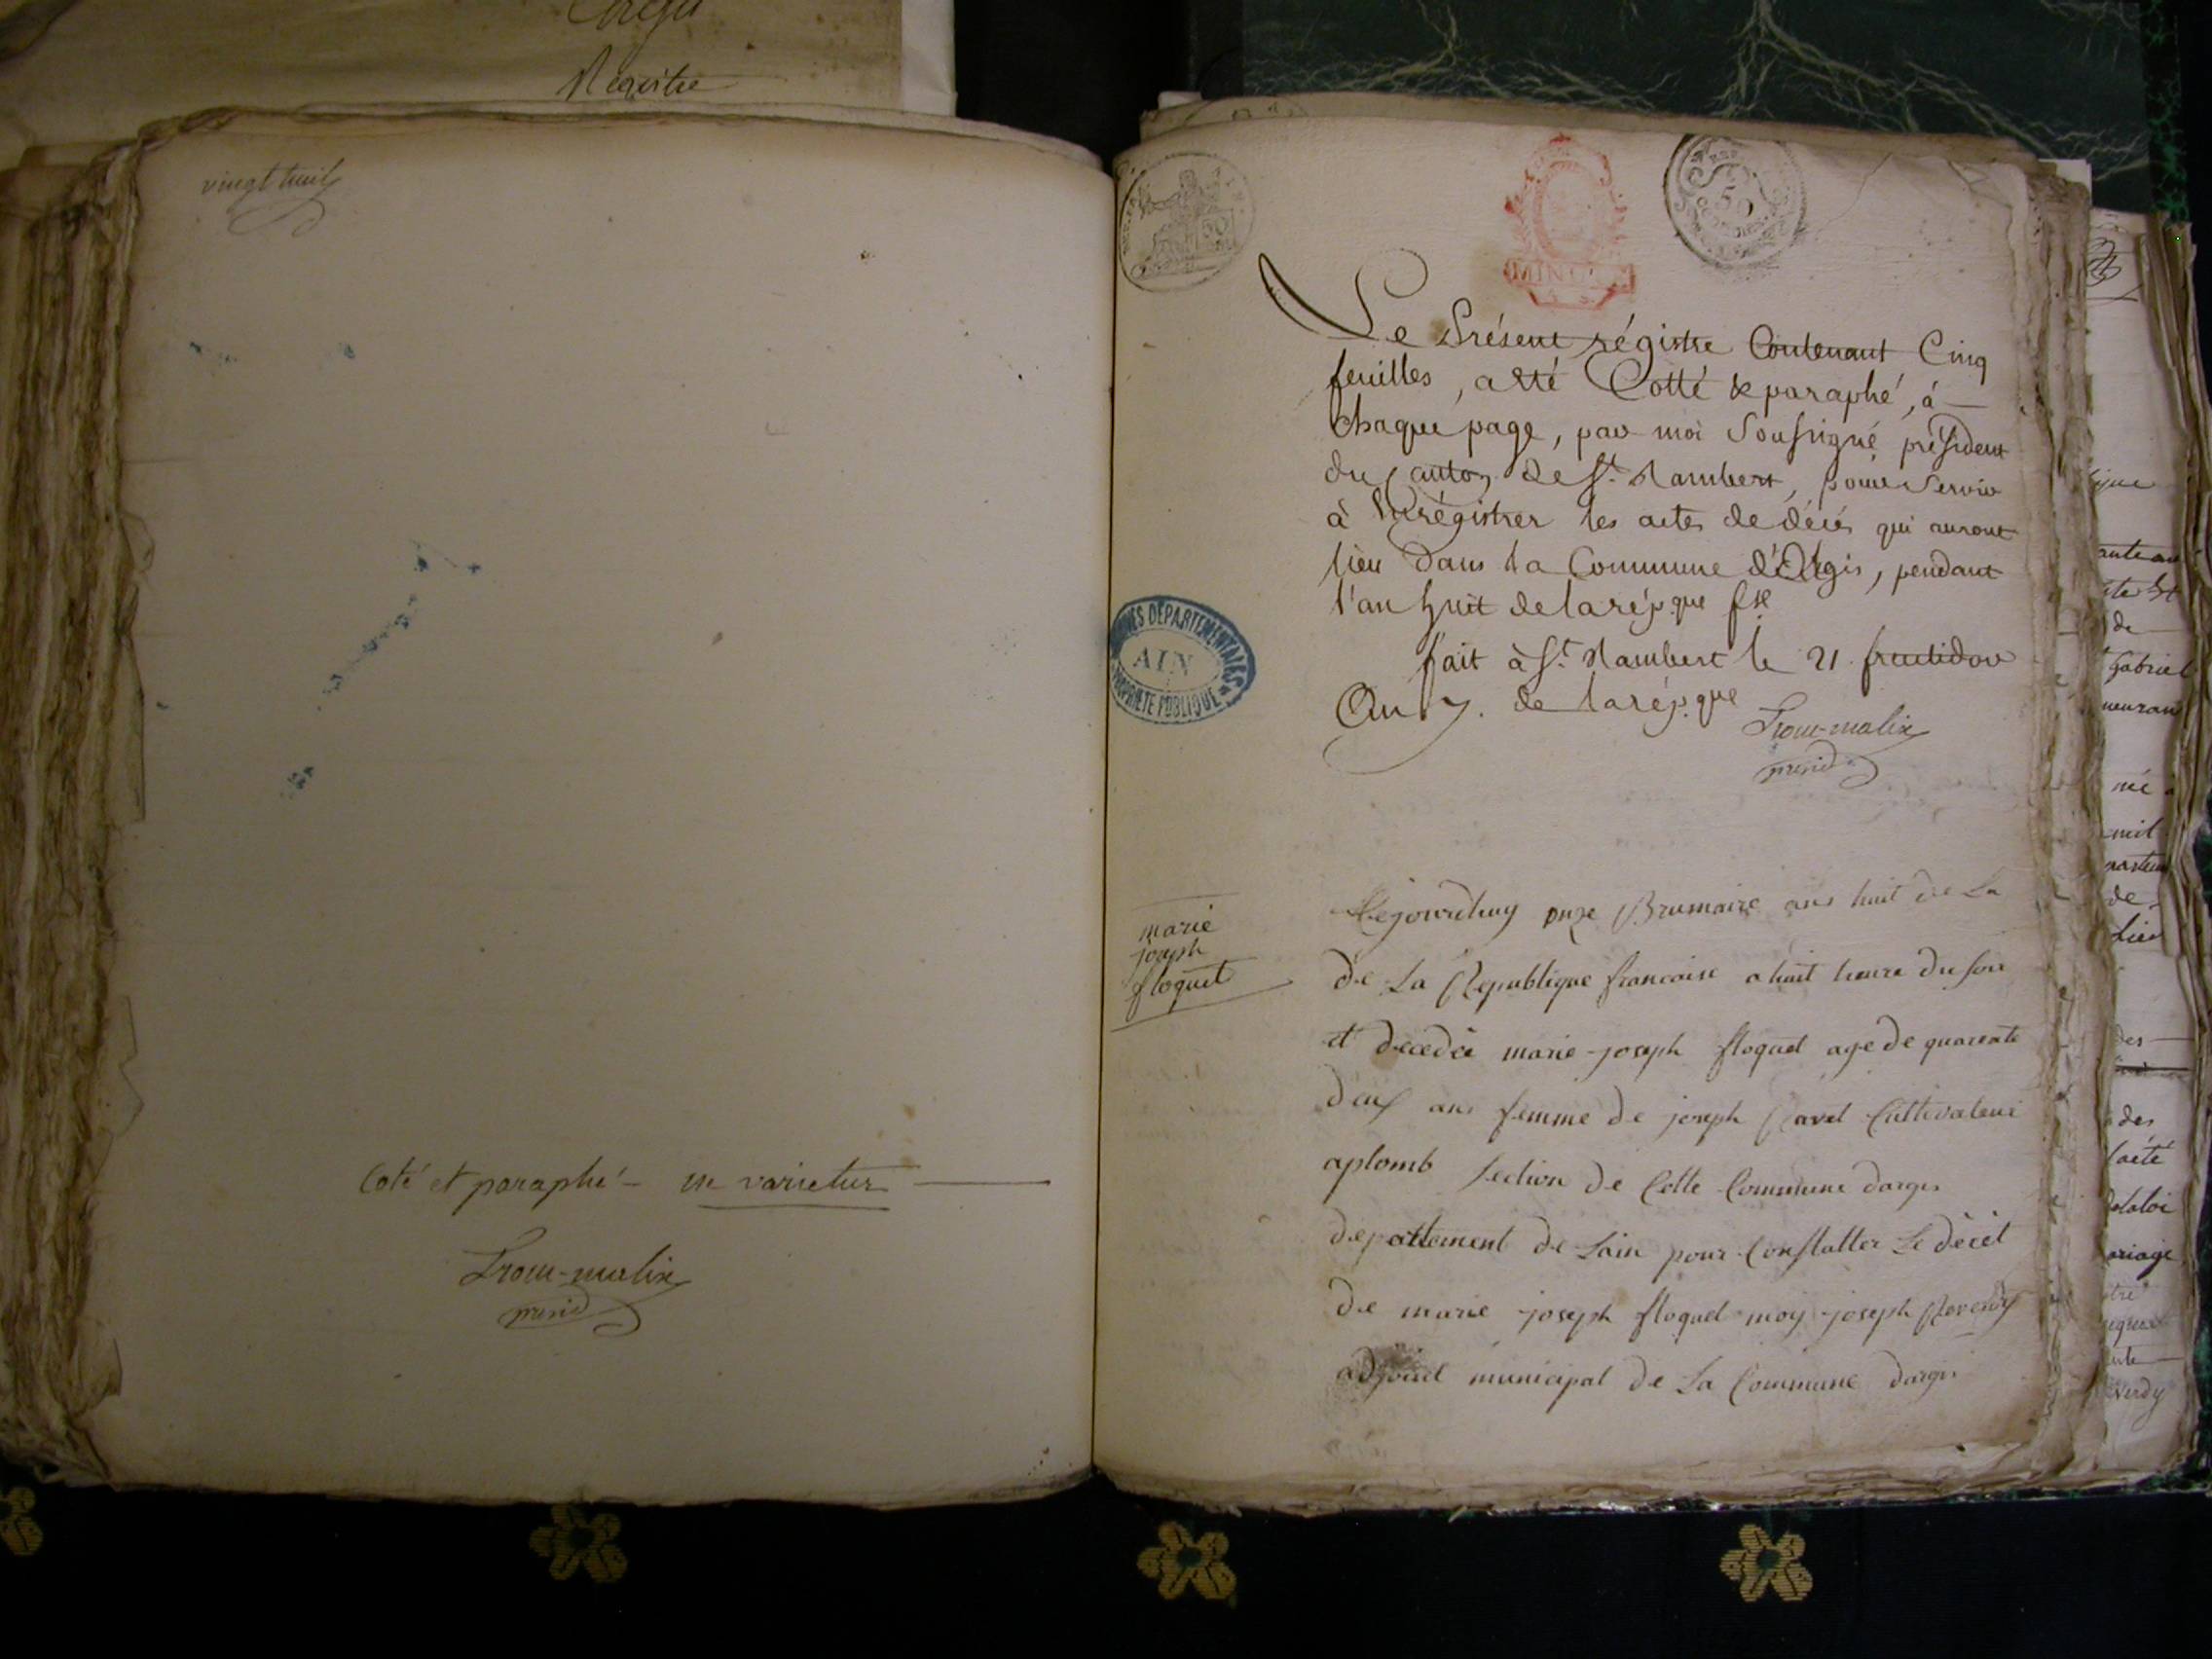 Registre
vingt huit
Coté et paraphé - ne varietur
presid
50
MINUTE
50
Le présent régistre Contenant Cinq
feuilles, a été Cotté & paraphé, à
Chaque page, par moi Soussigné président
du Canton de St. Rambert, pour Servir
à Enrégistrer les actes de décés qui auront
lieu dans la Commune d'Argis, pendant
l'an huit de la rép.que fse
fait à St. Rambert le 21 fructidor
An 7. de la rép.que
presid
ARCHIVES DÉPARTEMENTALES
AIN
PROPRIÉTÉ PUBLIQUE
marie
joseph
floquet
Cejourdhuy onze Brumaire ans huit de La
de La Republique francaise a huit heure du soir
et decedée marie-joseph floquet age de quarente
deux ans femme de joseph Ravet Cultivateur
aplomb section de Cette Commune dargis
departement de Lain pour Constatter Le décèt
de marie joseph floquet moy joseph Reverdy
adjoint municipal de La Commune dargis
Gabriel
né
mil
de
Lieu
des
des
mariage